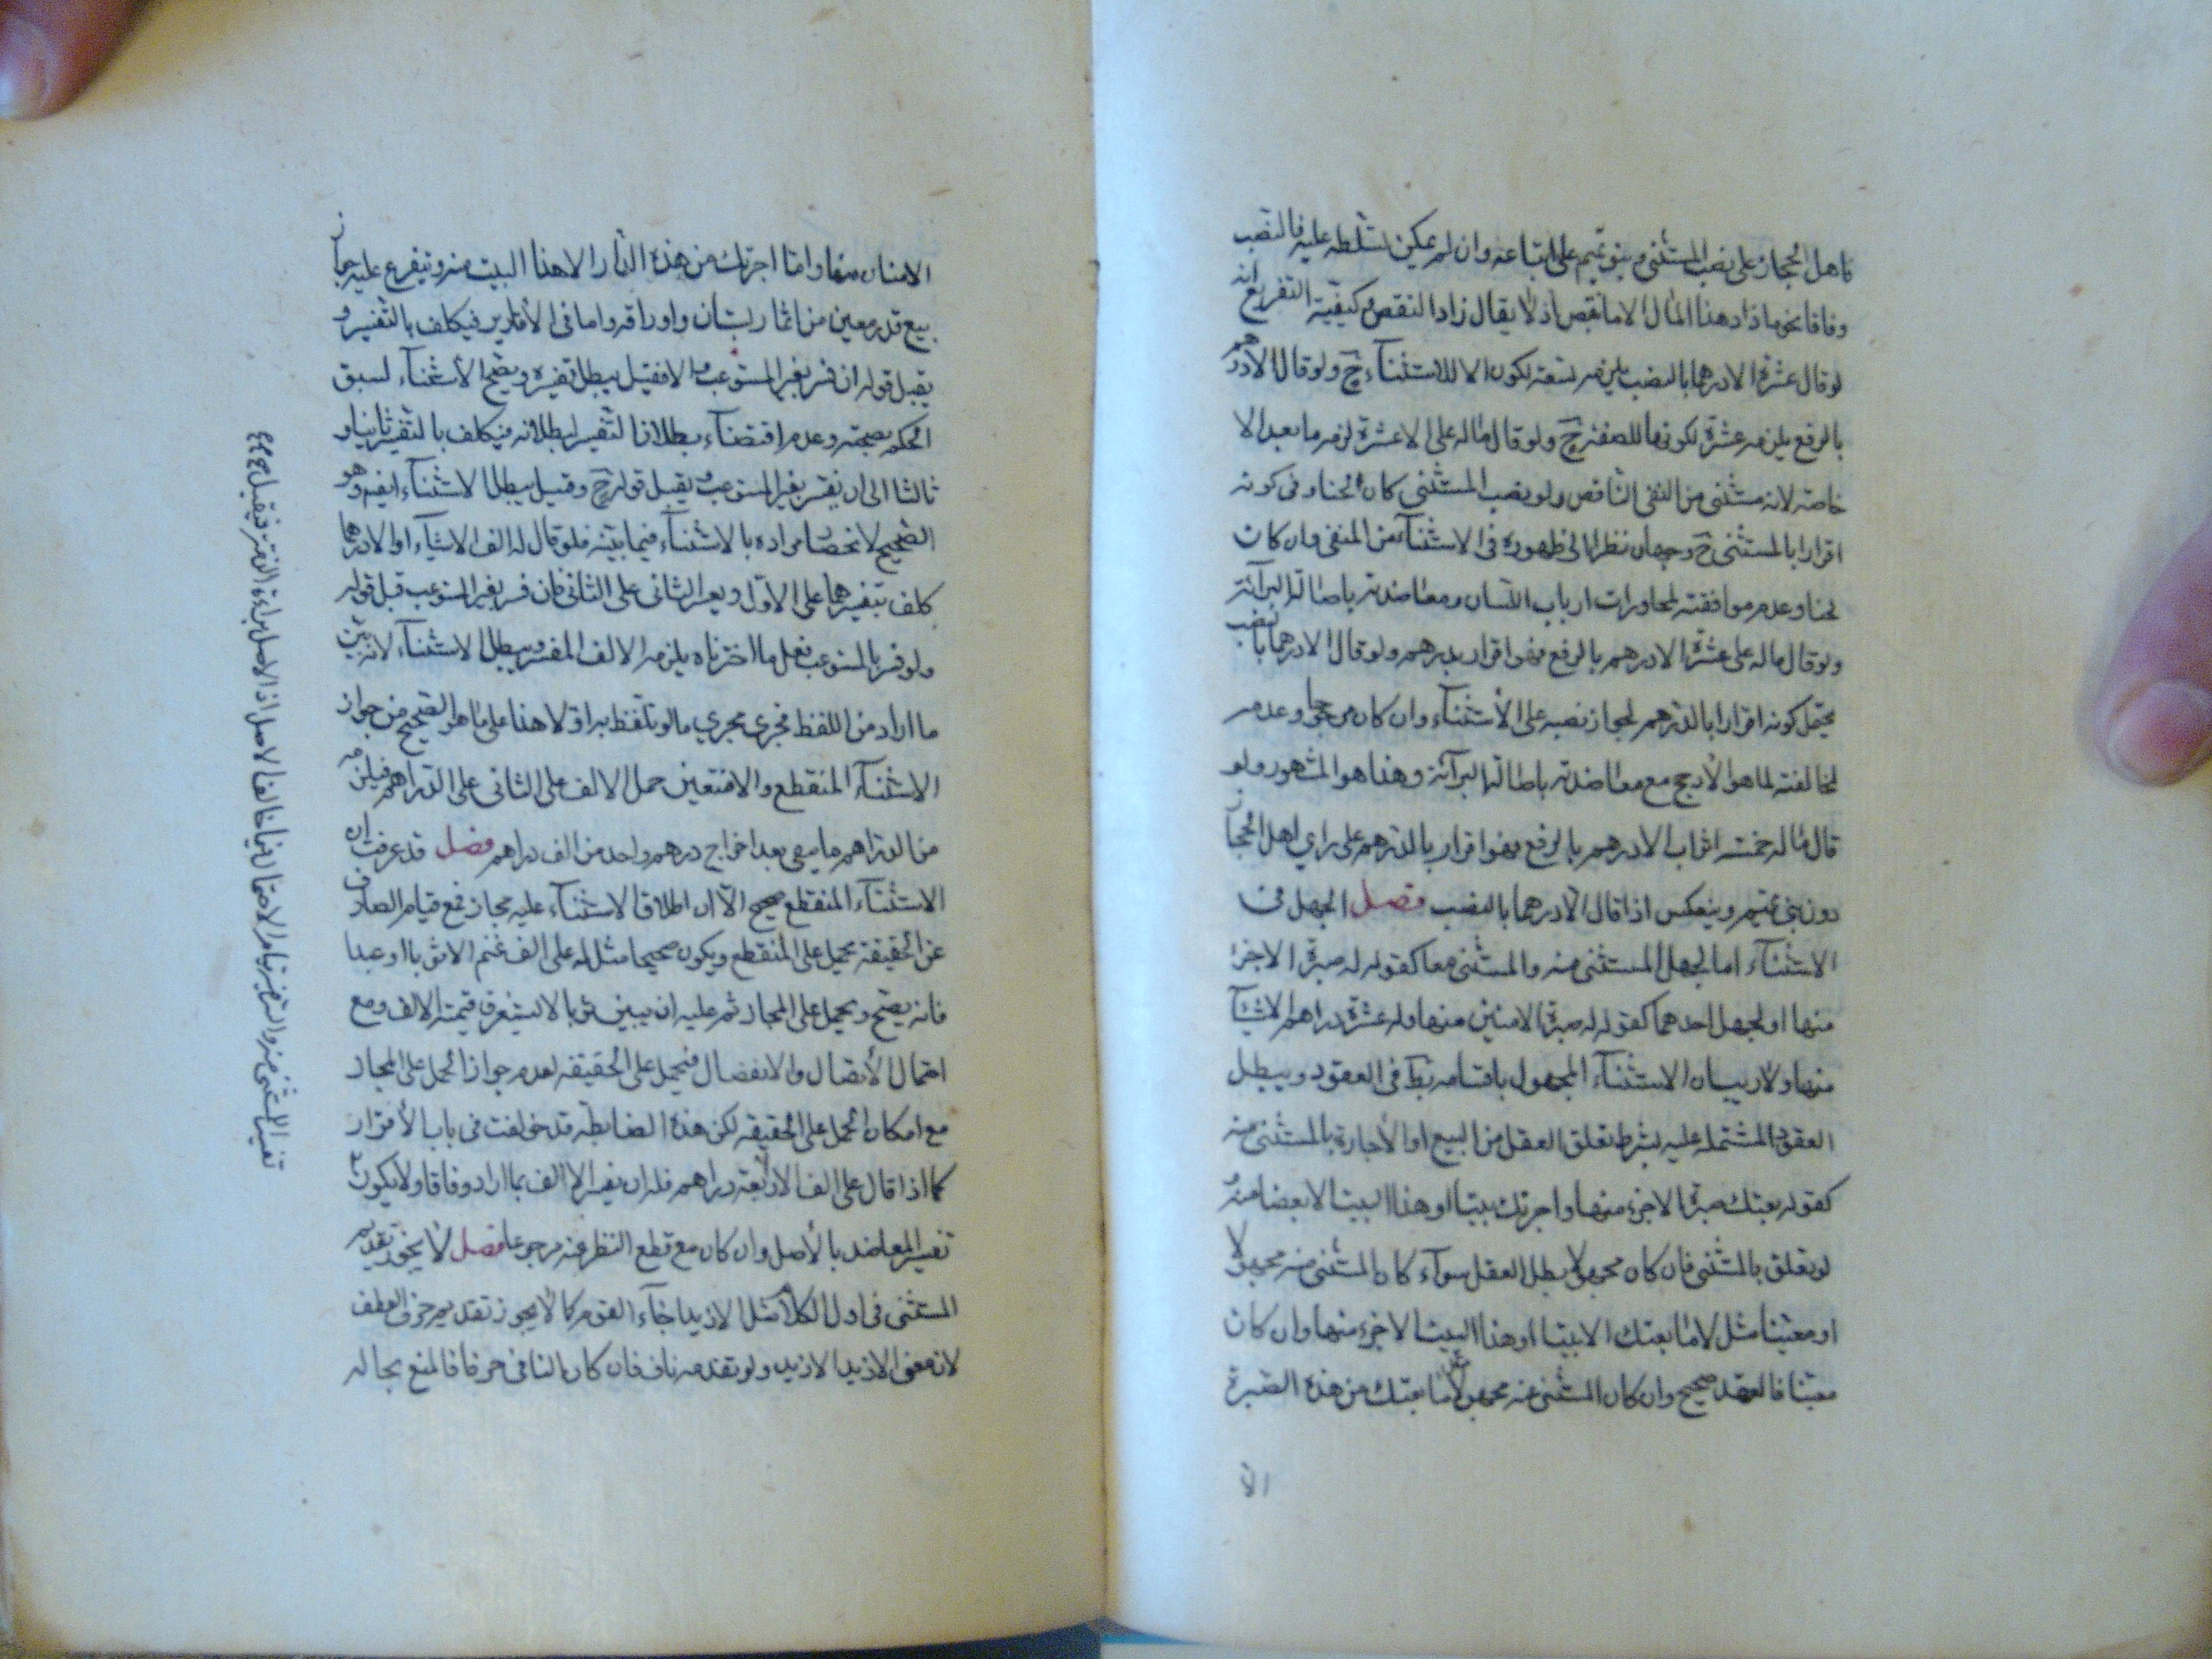 كاهل الحجاز على نصب المستثنى وبنو تميم على اتباعه وان لم يمكن تسلطه عليه فالنصب
وفاقا نحو ما زاد هذا المال الا ما نقص اذ لا يقال زاد النقص وكيفية التفريع انه
لو قال عشرة الا درهما بالنصب يلزمه تسعة لكون الا للاستثناء ح ولو قال الا درهم
بالرفع يلزمه عشرة لكونها للصفة ح ولو قال ماله على الا عشرة لزمه ما بعد الا
خاصة لانه مستثنى من النفى الناقص ولو نصب المستثنى كان لحنا وفى كونه
اقرارا بالمستثنى ح وجهان نظرا الى ظهوره فى الاستثناء من المنفى وان كان
لحنا وعدم موافقته لمحاورات ارباب اللسان ومعاضدته باصالة البرائة
ولو قال ماله على عشرة الا درهم بالرفع فهو اقرار بدرهم ولو قال الا درهما بالنصب
يحتمل كونه اقرارا بالدرهم لجواز نصبه على الاستثناء وان كان مرجوحا وعدمه
لمخالفته لما هو الارجح مع معاضدته باصالة البرائة وهذا هو المشهور ولو
قال ماله خمسة اثواب الا درهم بالرفع فهو اقرار بالدرهم على راى اهل الحجاز
دون بنى تميم وينعكس اذا قال الا درهما بالنصب فصل الجهل فى
الاستثناء اما لجهل المستثنى منه والمستثنى معا كقوله له صبرة الا جزء
منها او لجهل احدهما كقوله له صبرة الا منين منها وله عشرة دراهم الا شيئا
منها ولا ريب ان الاستثناء المجهول باقسامه فى العقود ويبطل
العقود المشتملة عليه بشرط تعلق العقد من البيع او الاجارة بالمستثنى منه
كقوله بعتك صبرة الا جزء منها واجرتك بيتا او هذا البيت الا بعضا منه و
لو تعلق بالمستثنى فان كان مجهولا بطل العقد سواء كان المستثنى منه مجهولا
او معينا مثل لا ما بعتك الا بيتا او هذا البيت الا جزء منها وان كان
معينا فالعقد صحيح وان كان المستثنى منه مجهولا مثل ما بعتك من هذه الصبرة
الا
الا منان منها واما اجرتك من هذه الدار الا هذا البيت منه ويتفرع عليه جواز
بيع قدر معين من اثمار بستان واوراقه واما فى الاقارير فيكلف بالتفسير و
يقبل قوله ان فسر بغير المستوعب والا فقيل يبطل تفسيره ويصح الاستثناء لسبق
الحكم بصحته وعدم اقتضاء بطلان التفسير لبطلانه فيكلف بالتفسير ثانيا و
ثالثا الى ان يفسر بغير المستوعب ويقبل قوله ح وقيل يبطل الاستثناء ايضا وهو
الصحيح لانحصار مراده بالاستثناء فيما بينه فلو قال له الف الا شيئا او الا درهما
كلف بتفسيرهما على الاول ويعبر الثانى على الثانى فان فسر بغير المستوعب قبل قوله
ولو فسر بالمستوعب فعلى ما اخترناه يلزمه الالف المفسر ويبطل الاستثناء لانه بين
ما اراد من اللفظ فجرى مجرى ما لو تلفظ به اولا هذا على ما هو الصحيح من جواز
الاستثناء المنقطع والا فتعين حمل الالف على الثانى على الدراهم فيلزمه
من الدراهم ما يبقى بعد اخراج درهم واحد من الف دراهم فصل قد عرفت ان
الاستثناء المنقطع صحيح الا ان اطلاق الاستثناء عليه مجاز فمع قيام الصارف
عن الحقيقة يحمل على المنقطع ويكون صحيحا مثل له على الف غنم الا ثوبا او عبدا
فانه يصح ويحمل على المجاز ثم عليه ان يبين ثوبا لا يستغرق قيمته الالف ومع
احتمال الاتصال والانفصال فيحمل على الحقيقة لعدم جواز الحمل على المجاز
مع امكان الحمل على الحقيقة لكن هذه الضابطة قد خولفت فى باب الاقرار
كما اذا قال على الف الا اربعة دراهم فله ان يفسر الالف بما اراد وفاقا ولا يكون
تفسير المعاضد بالاصل وان كان مع قطع النظر عنه مرجوحا فصل لا يجوز تقديم
المستثنى فى اول الكلام مثل الا زيدا جاء القوم كما لا يجوز تقديم حرف العطف
لانه معنى الا زيدا لا زيد ولو تقدمه ناف فان كان النافى حرفا فالمنع بحاله